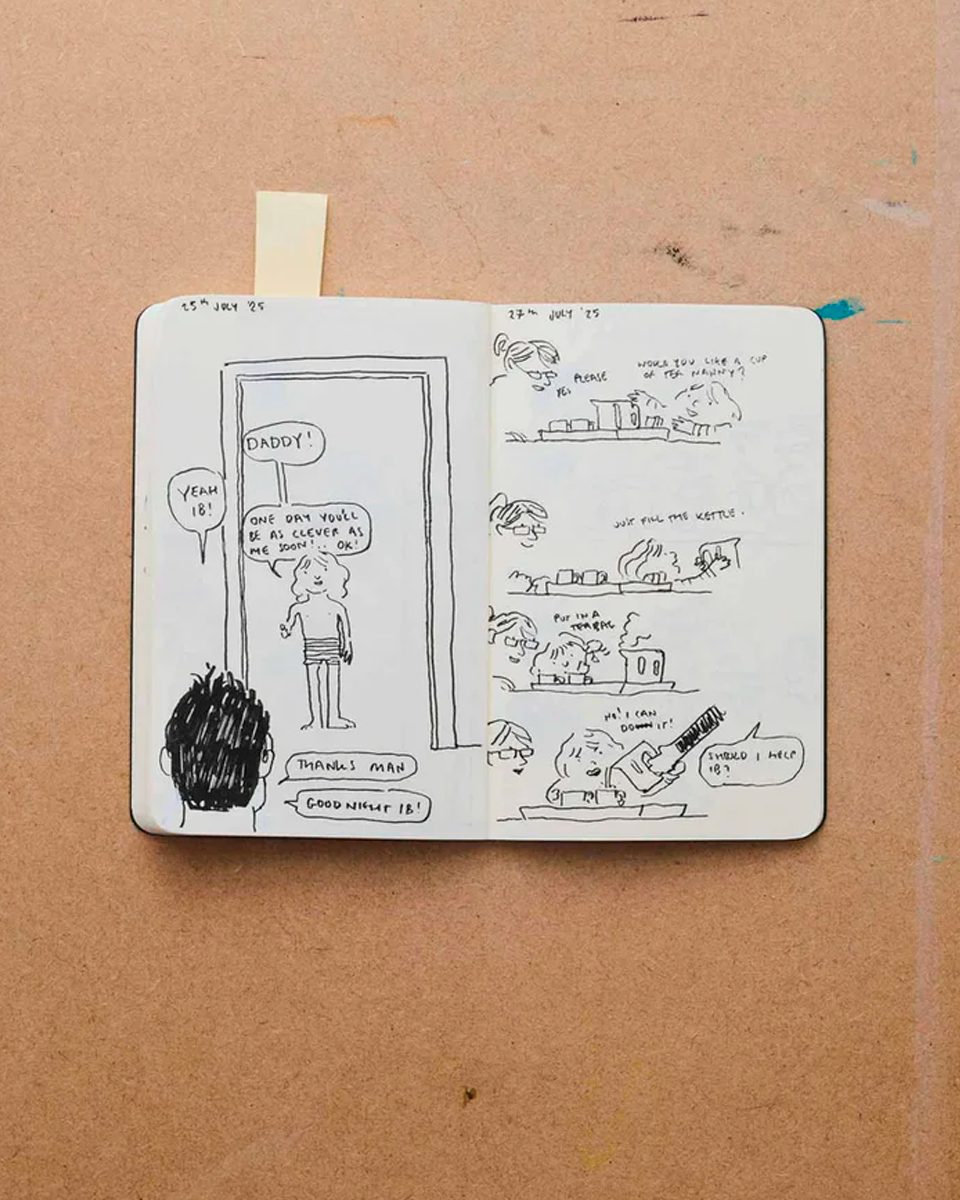 25th JULY '25
DADDY!
YEAH
IB!
ONE DAY YOU'LL
BE AS CLEVER AS
ME SOON!.. OK!
THANKS MAN
GOODNIGHT IB!
27th JULY '25
WOULD YOU LIKE A CUP
OF TEA NANNY?
YES PLEASE
JUST FILL THE KETTLE.
PUT IN A
TEABAG
NO! I CAN
DO IT!
SHOULD I HELP
IB?